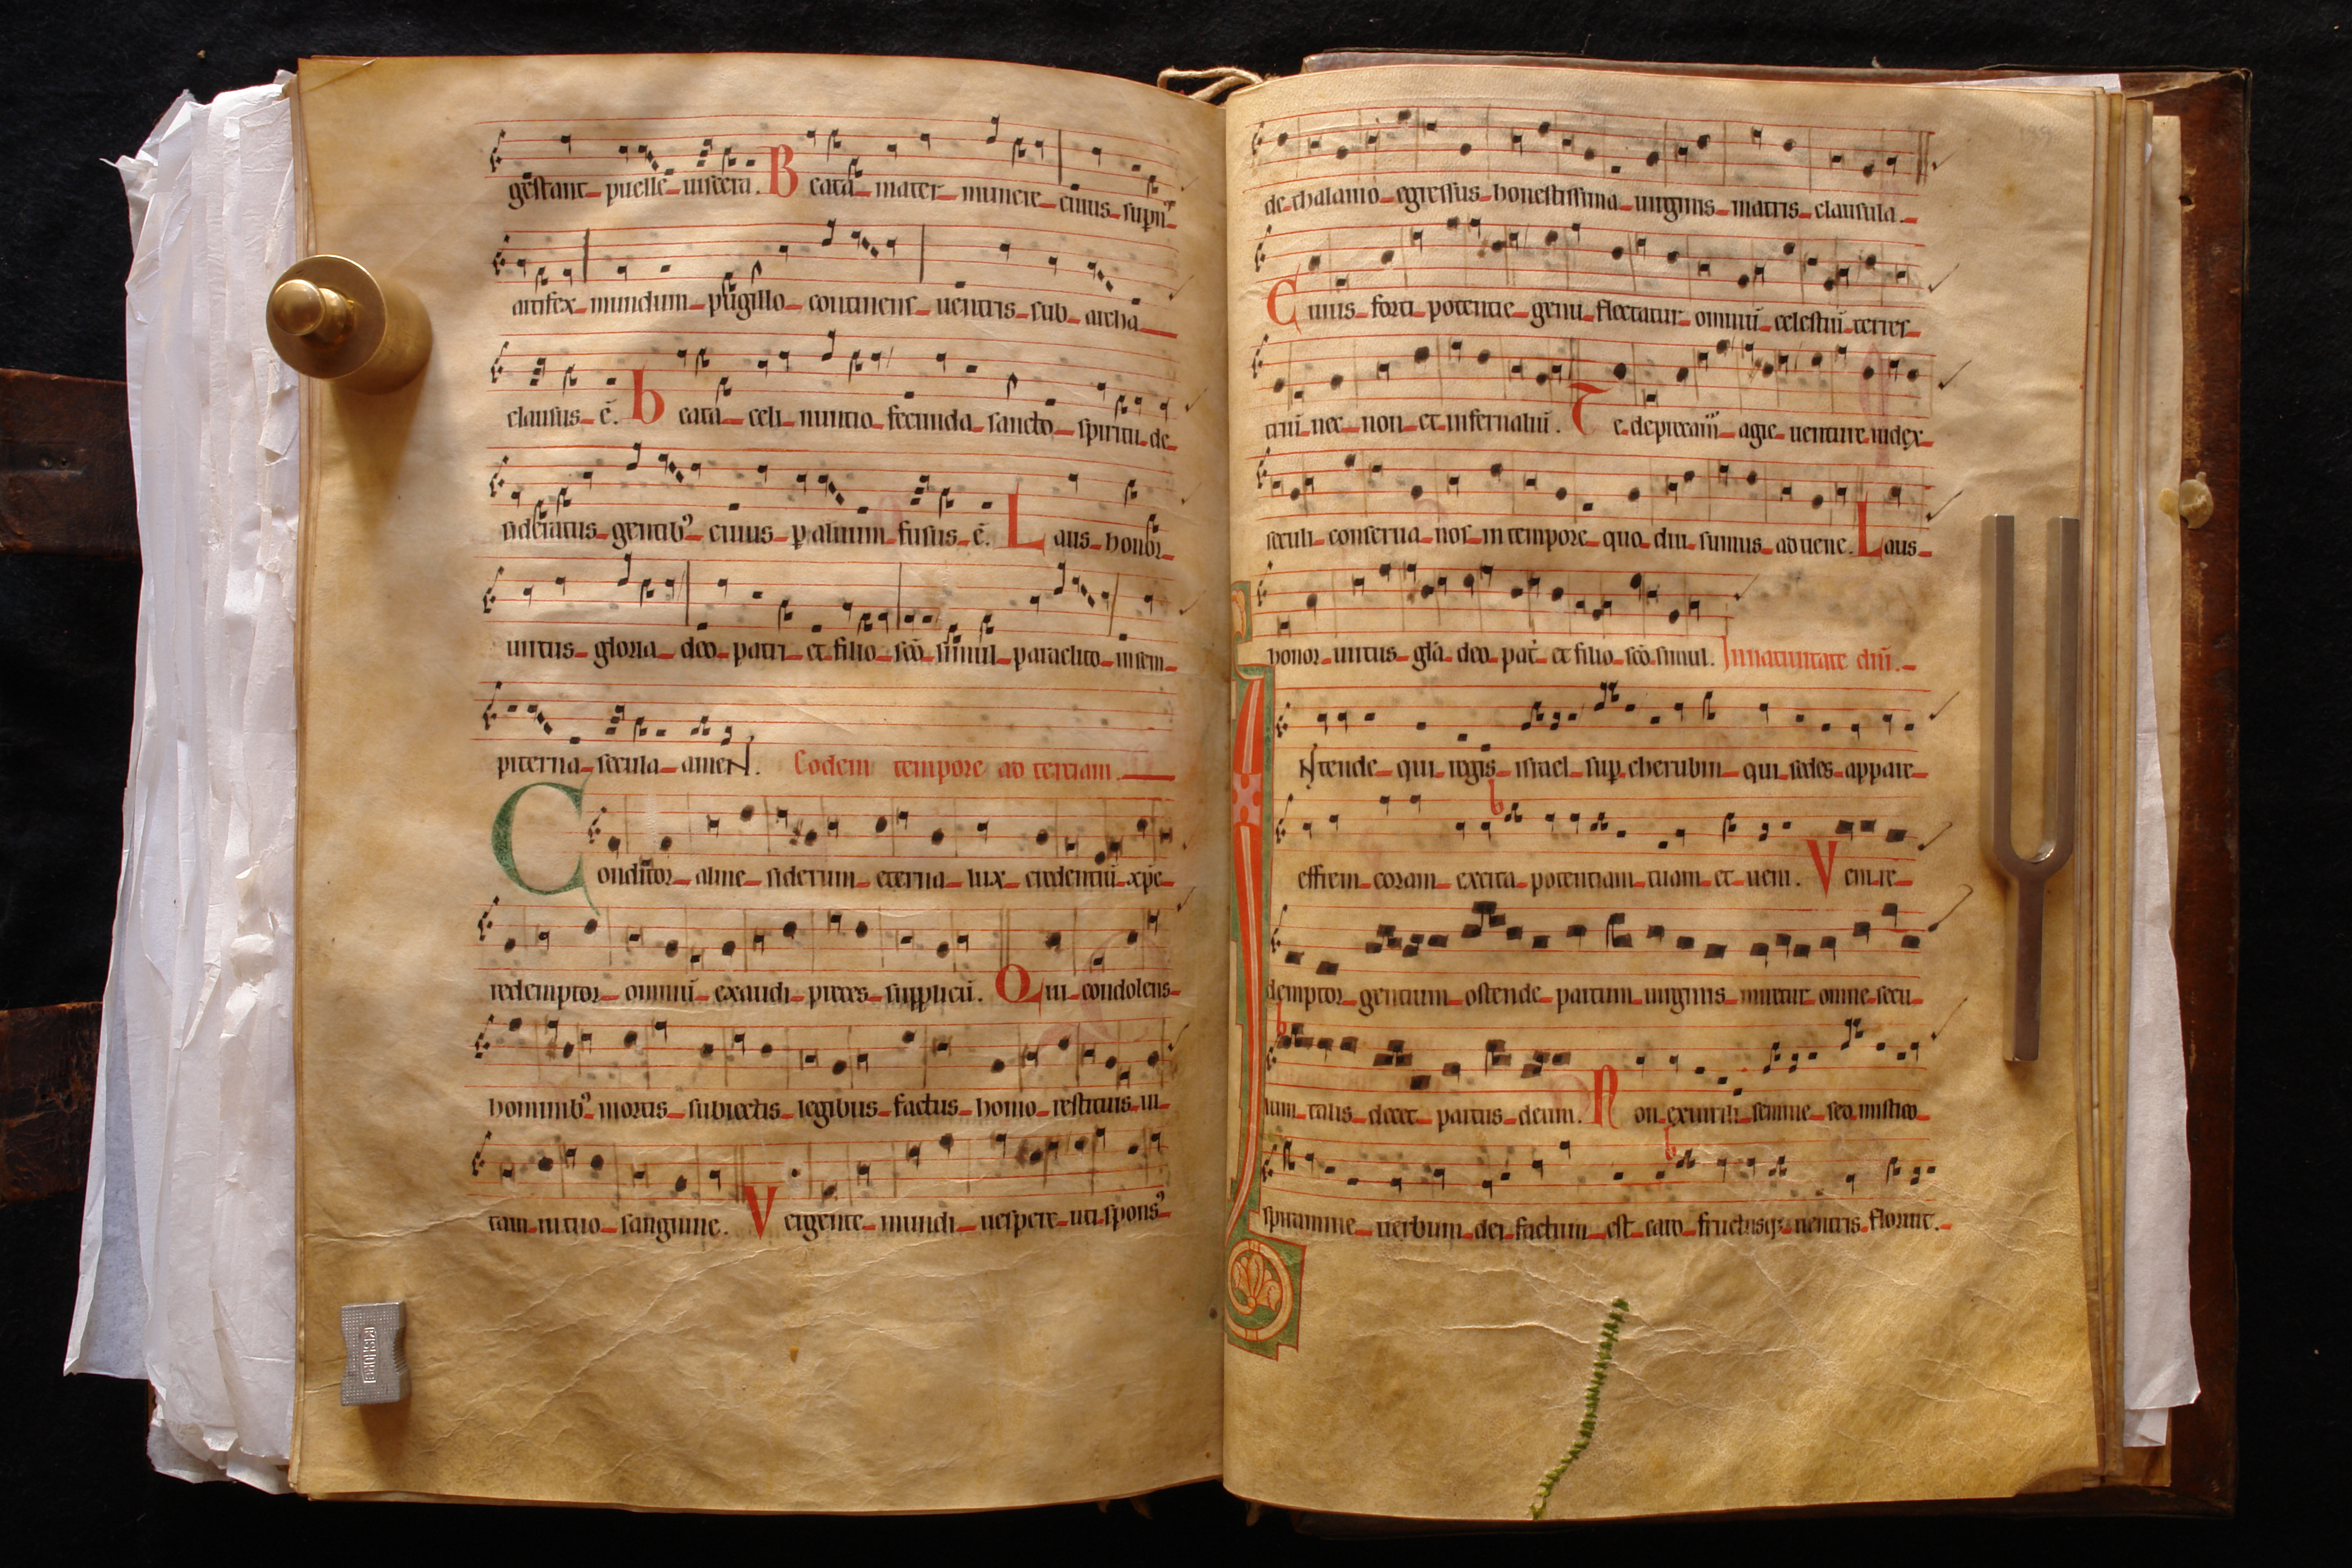 gestant puelle uiscera. Beata mater munere cuius supn'
artifex mundum pugillo continens uentris sub archa
clausus ē. beata celi nuntio fecunda sancto spiritu de
sideratus gentib' cuius p aluum fusus ē. Laus honor
uirtus gloria deo patri et filio scō simul paraclito insem
piterna secula ameN. Eodem tempore ad terciam.
Conditor alme siderum eterna lux credentiū xpe
redemptor omniū exaudi preces supplicū. Qui condolens
hominib' mortis subiectis legibus factus homo restituis ui
tam in tuo sanguine. Vergente mundi uespere uti spons'
de thalamo egressus honestissima uirginis matris clausula.
Cuius forti potentie genu flectatur omniū celestiū terres
triū nec non et infernaliū. Te deprecam agie uenture iudex
seculi conserua nos in tempore quo diu sumus ad uene. Laus
honor uirtus glā deo pat et filio scō simul. In natiuitate dnī.
INtende qui regis israel sup cherubin qui sedes appare
effrem coram excita potentiam tuam et ueni. Veni re
demptor gentium ostende partum uirginis miretur omne secu
lum talis decet partus deum. Non ex uirili semine sed mistico
spiramine uerbum dei factum est caro fructusq; uentris floruit.